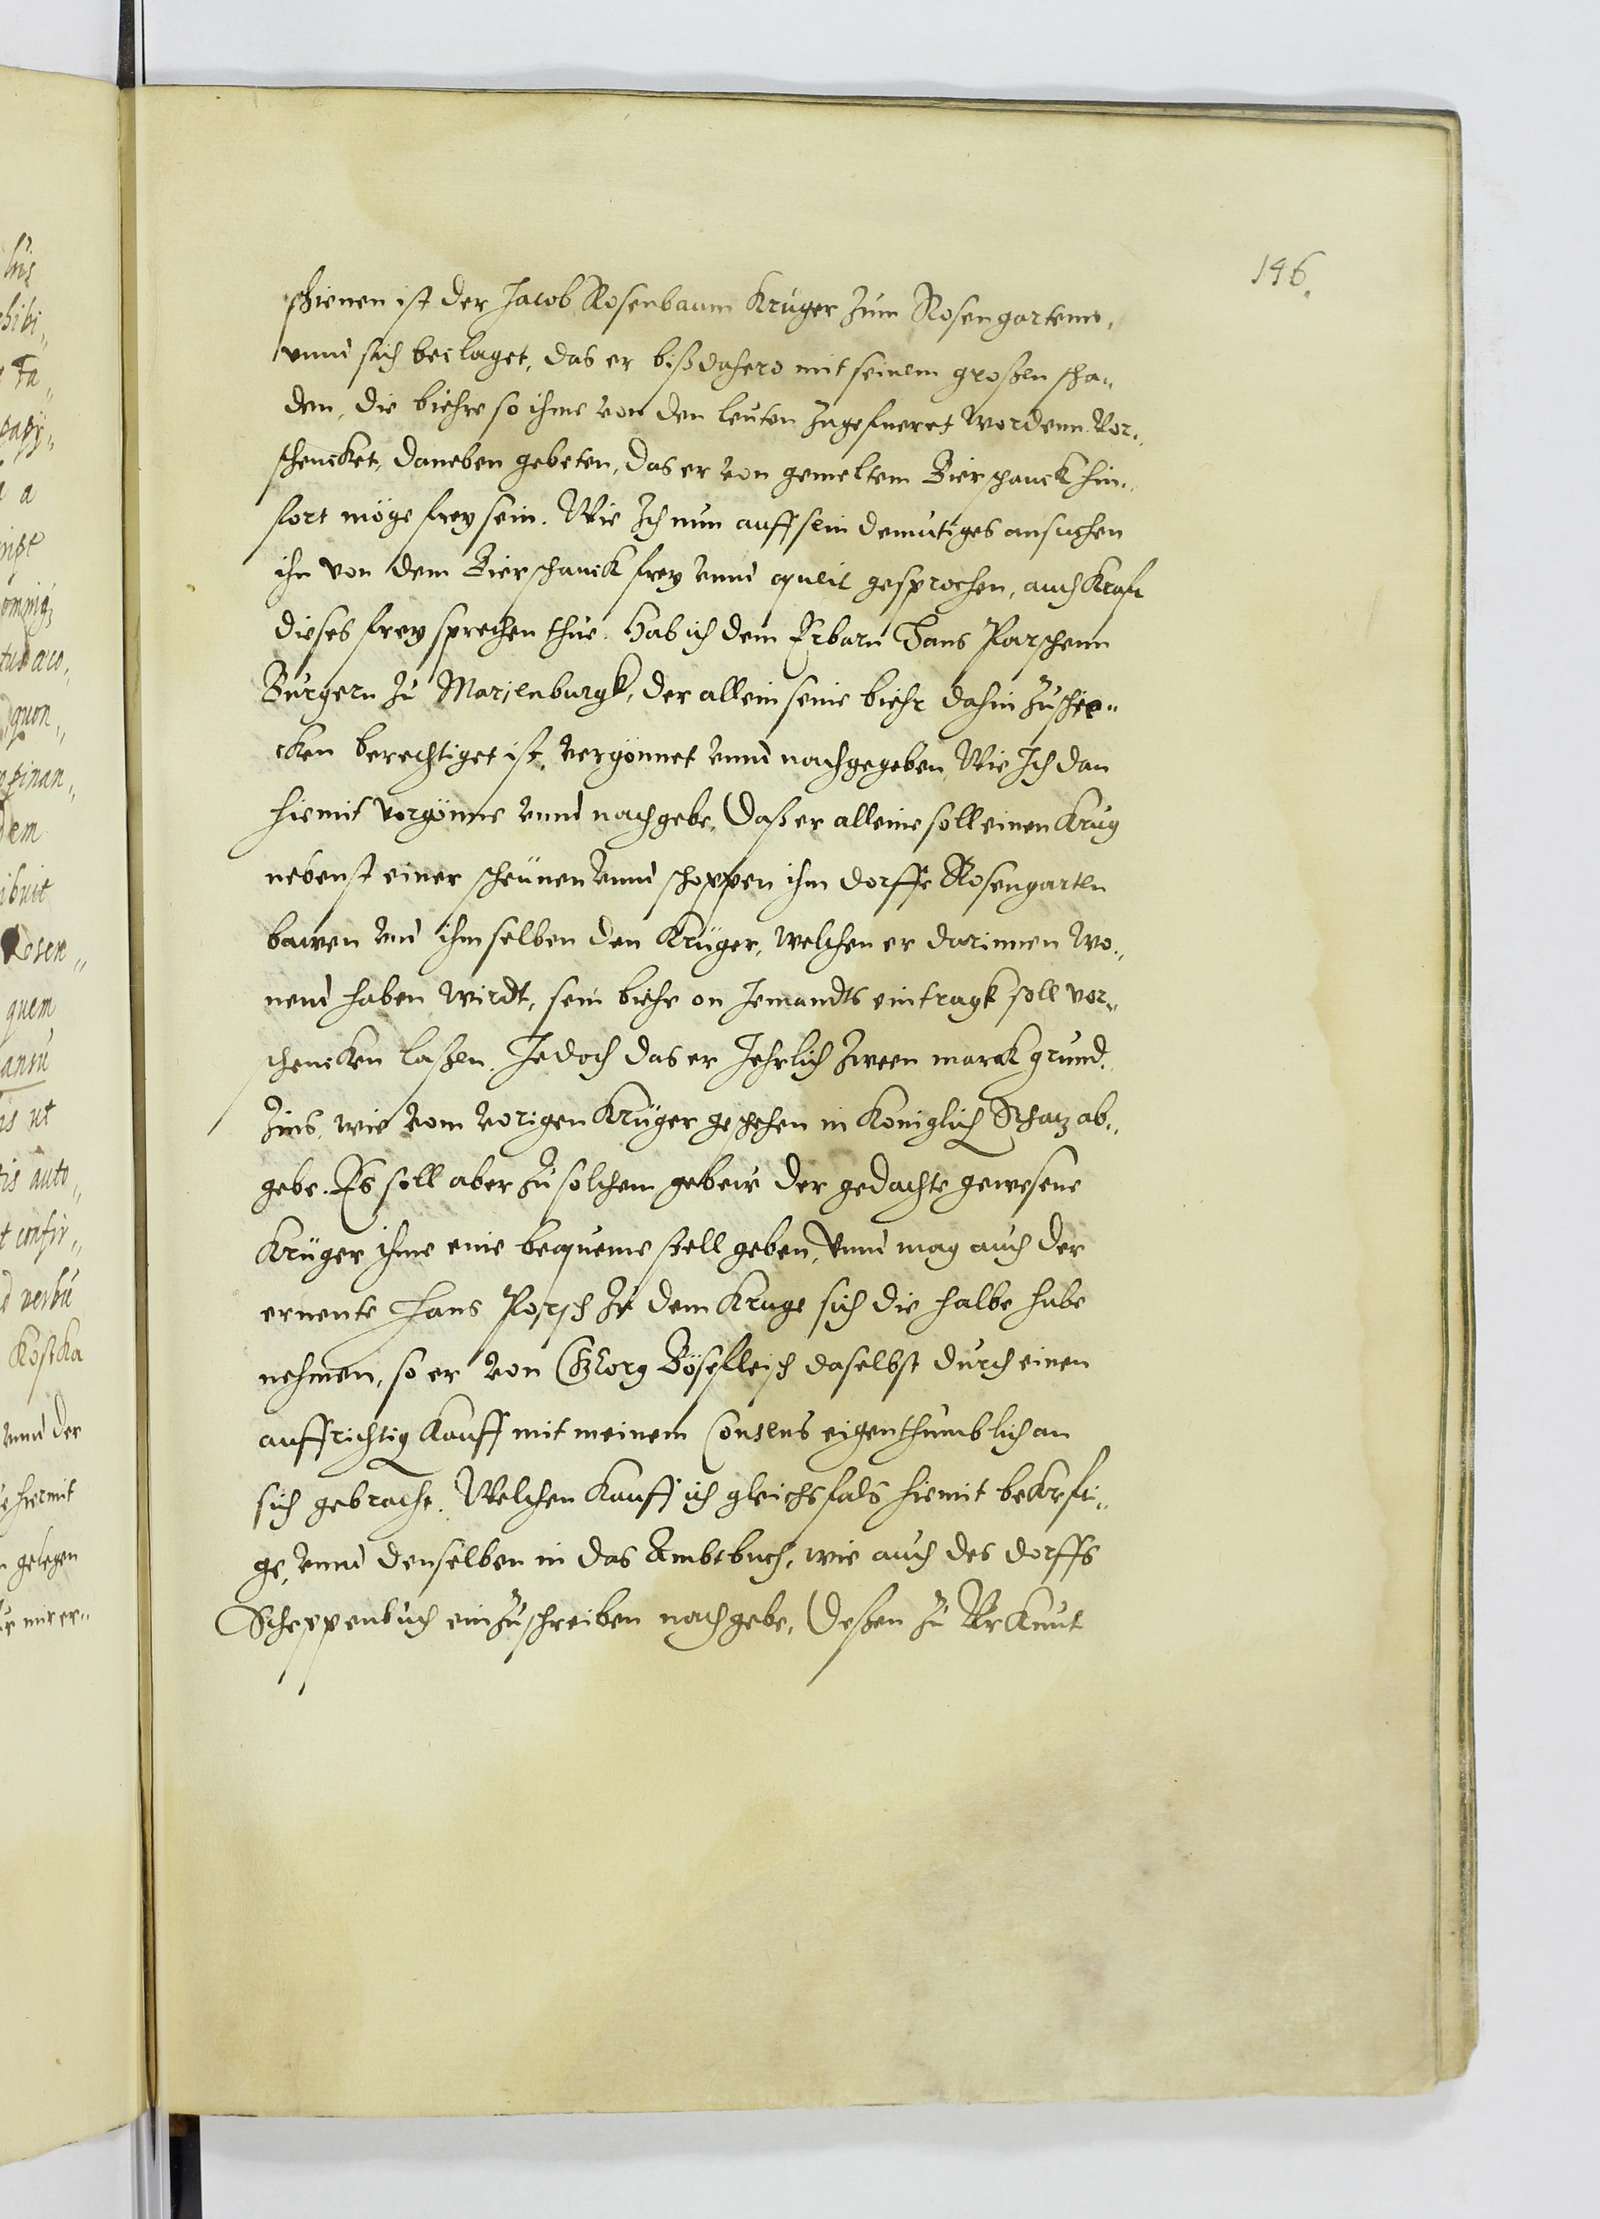 146.
schienen ist der Jacob Rosenbaum Krüger zum Rosengartenn,
vnnd sich beclaget, das er bißdahero mit seinem großen scha„
den, die biehre so ihme von den leuten zugefueret wordenn vor„
schencket, daneben gebeten, das er von gemeltem Bierschanck hin„
fort möge frey sein. Wie Ich nun auff sein demütiges ansuchen
ihn von dem Bierschanck frey vnnd queit gesprochen, auch Kraft
dieses frey sprechen thue. Hab ich dem Erbarn Hans Porschenn
Bürgern zu Marienburgk, der allein seine biehr dahin zuschi„
cken berechtiget ist, vergönnet vnnd nachgegeben, Wie Ich dan
hiemit vorgönne vnnd nachgebe, Daß er alleine soll einen Krug
nebenst einer scheünen vnnd schoppen ihm dorffe Rosengarten
bawen vnd ihm selben den Krüger, welchen er dorinnen wo„
nend haben wirdt, sein biehr on Jemandts eintragk soll vor„
schencken laßen. Jedoch das er Jehrlich zween marck grund„
Zins, wie vom vorigen Krüger geschehen in Königlich Schatz ab„
gebe. Es soll aber zu solchem gebeüe der gedachte gewesene
Krüger ihme eine bequeme stell geben, Vnnd mag auch der
ernente Hans Porsch zu dem Kruge sich die halbe hube
nehmen, so er von Georg Bösefleisch daselbst durch einen
auffrichtig Kauff mit meinem Consens eigenthumblich an
sich gebracht. Welchen Kauff ich gleichsfals hiemit bekrefti„
ge, vnnd denselben in das Ambtbuch, wie auch des dorffs
Scheppenbuch einzuschreiben nachgebe, Deßen zu Vrkunt